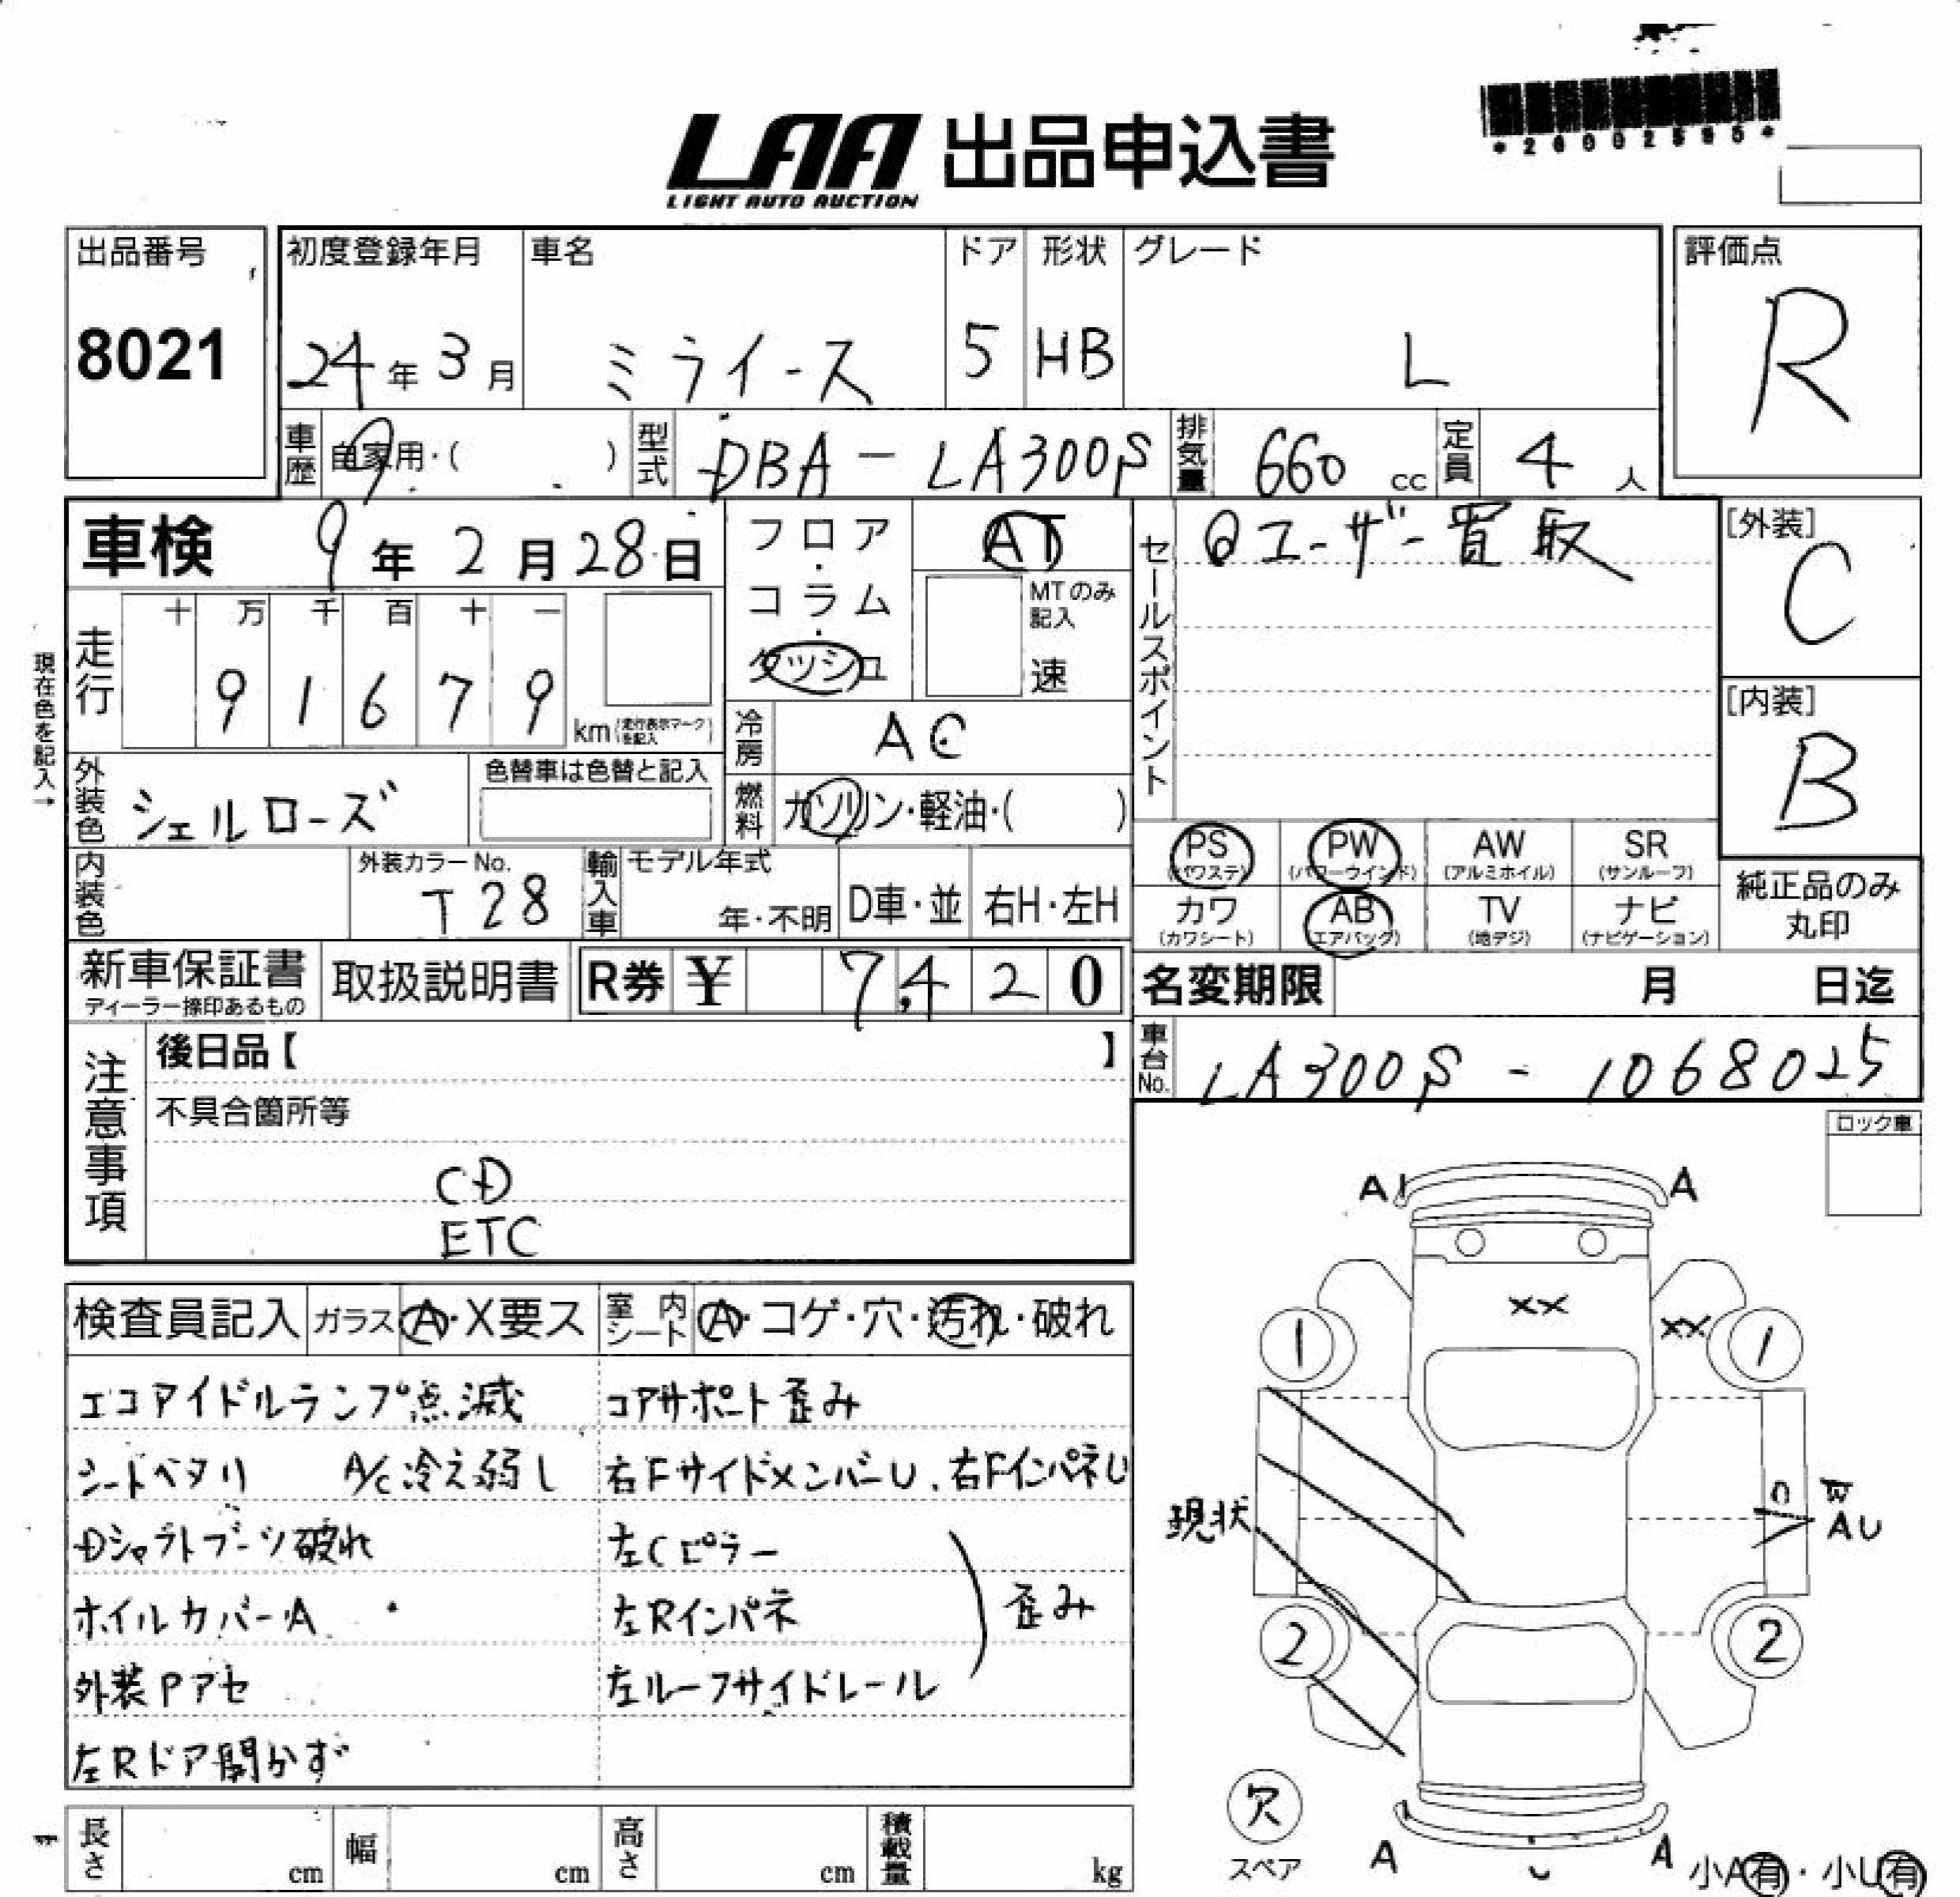 *26002595*
LAA 出品申込書
LIGHT AUTO AUCTION
出品番号
8021
初度登録年月
24年3月
車名
ミライース
ドア
5
形状
HB
グレード
L
評価点
R
車歴
自家用・( )
型式
DBA-LA300S
排気量
660 cc
定員
4 人
車検 9年2月28日
フロア・コラム・ダッシュ
AT
MTのみ記入
速
セールスポイント
ユーザー買取
[外装]
C
[内装]
B
現在色を記入→
走行
十 万 千 百 十 一
9 1 6 7 9
km(走行表示マークを記入)
冷房
AC
外装色
シェルローズ
色替車は色替と記入
燃料
ガソリン・軽油・( )
PS (パワステ)
PW (パワーウインド)
AW (アルミホイル)
SR (サンルーフ)
カワ (カワシート)
AB (エアバッグ)
TV (地デジ)
ナビ (ナビゲーション)
純正品のみ
丸印
内装色
外装カラーNo.
T28
輸入車
モデル年式
年・不明
D車・並
右H・左H
新車保証書
ディーラー捺印あるもの
取扱説明書
R券 ¥ 7,420
名変期限 月 日迄
車台No.
LA300S-1068025
注意事項
後日品【 】
不具合箇所等
CD
ETC
ロック車
検査員記入
ガラス
A・X要ス
室内シート
A・コゲ・穴・汚れ・破れ
エコアイドルランプ点滅
シートヘタリ A/C冷え弱し
Dシャフトブーツ破れ
ホイルカバーA
外装Pアセ
左Rドア開かず
コアサポート歪み
右FサイドメンバーU、右FインパネU
左Cピラー
左Rインパネ
左ルーフサイドレール
歪み
A1
A
XX
XX
1
1
現状
W
AU
2
2
欠
スペア
A
U
A
小A有・小U有
長さ
cm
幅
cm
高さ
cm
積載量
kg